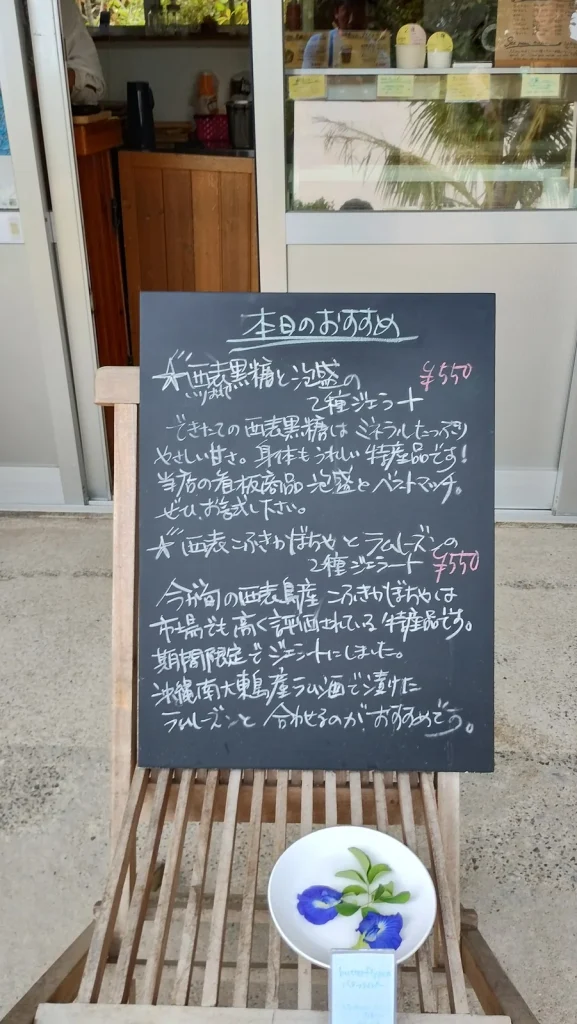 本日のおすすめ
☆西表黒糖と泡盛の ¥550
いりおもて
2種ジェラート
できたての西表黒糖はミネラルたっぷり
やさしい甘さ。身体もうれしい特産品です!
当店の看板商品 泡盛とベストマッチ。
ぜひ、お試し下さい。
☆西表こふきかぼちゃとラムレーズンの
2種ジェラート ¥550
今が旬の西表島産こふきかぼちゃは
市場でも高く評価されている特産品です。
期間限定でジェラートにしました。
沖縄南大東島産ラム酒で漬けた
ラムレーズンと合わせるのがおすすめです。